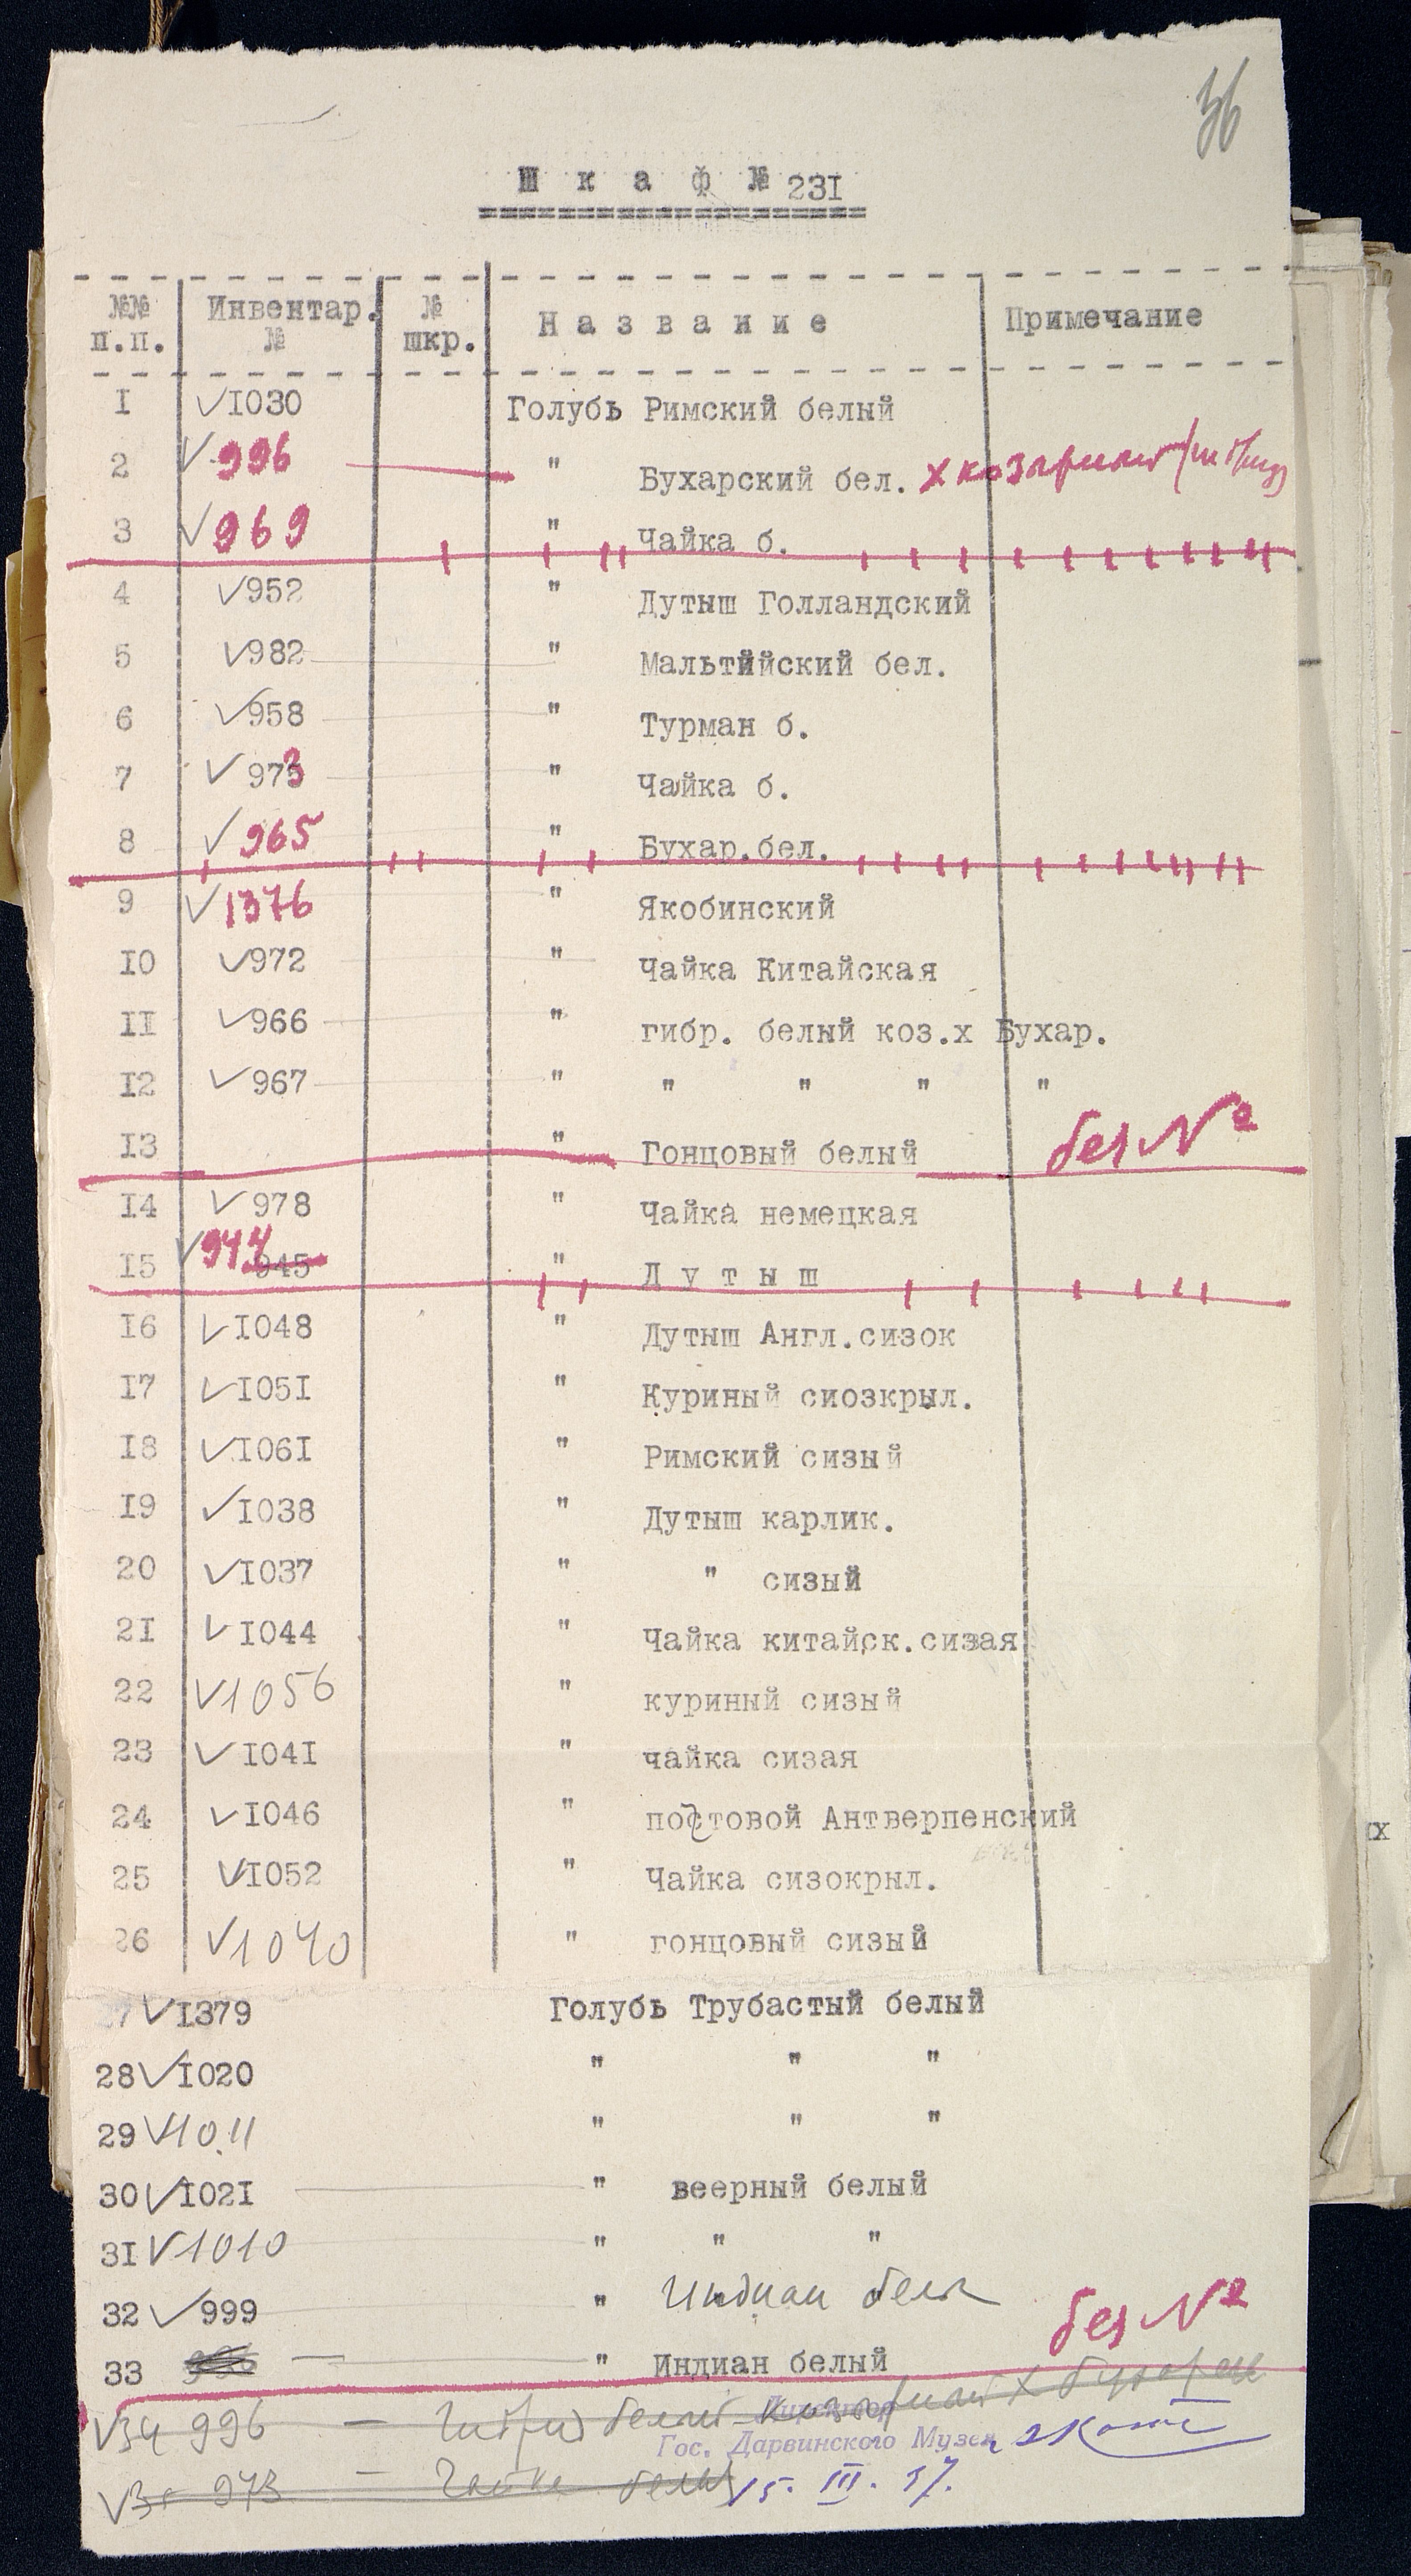 36
Шкаф № 231
№№ п.п. Инвентар. № № шкр. Название Примечание
I ✓I030 Голубь Римский белый
2 ✓996 " Бухарский бел. х козырный
3 ✓969 " Чайка б.
4 ✓952 " Дутыш Голландский
5 ✓982 " Мальтийский бел.
6 ✓958 " Турман б.
7 ✓973 " Чайка б.
8 ✓965 " Бухар.бел.
9 ✓1376 " Якобинский
I0 ✓972 " Чайка Китайская
II ✓966 " гибр. белый коз.х Бухар.
I2 ✓967 " " " " "
I3 " Гонцовый белый без №
I4 ✓978 " Чайка немецкая
I5 ✓944 945 " Дутыш
I6 ✓I048 " Дутыш Англ.сизок
I7 ✓I05I " Куриный сиозкрыл.
I8 ✓I06I " Римский сизый
I9 ✓I038 " Дутыш карлик.
20 ✓I037 " " сизый
2I ✓I044 " Чайка китайск.сизая
22 ✓1056 " куриный сизый
23 ✓I04I " чайка сизая
24 ✓I046 " постовой Антверпенский
25 ✓I052 " Чайка сизокрыл.
26 ✓1040 " гонцовый сизый
27 ✓I379 Голубь Трубастый белый
28 ✓I020 " " "
29 ✓1011 " " "
30 ✓I02I " веерный белый
3I ✓1010 " " "
32 ✓999 " Индиан бел
33 " Индиан белый без №
✓34 996 — Гибрид белый козырный х бухарск
Директор
Гос. Дарвинского Музея
✓35 973 — Чайка белая
15. III. 57.